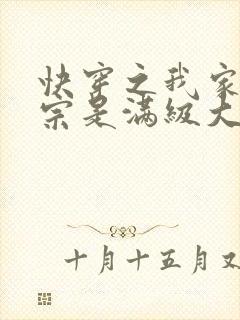 快穿之我家
宗是满级大
十月十五月又